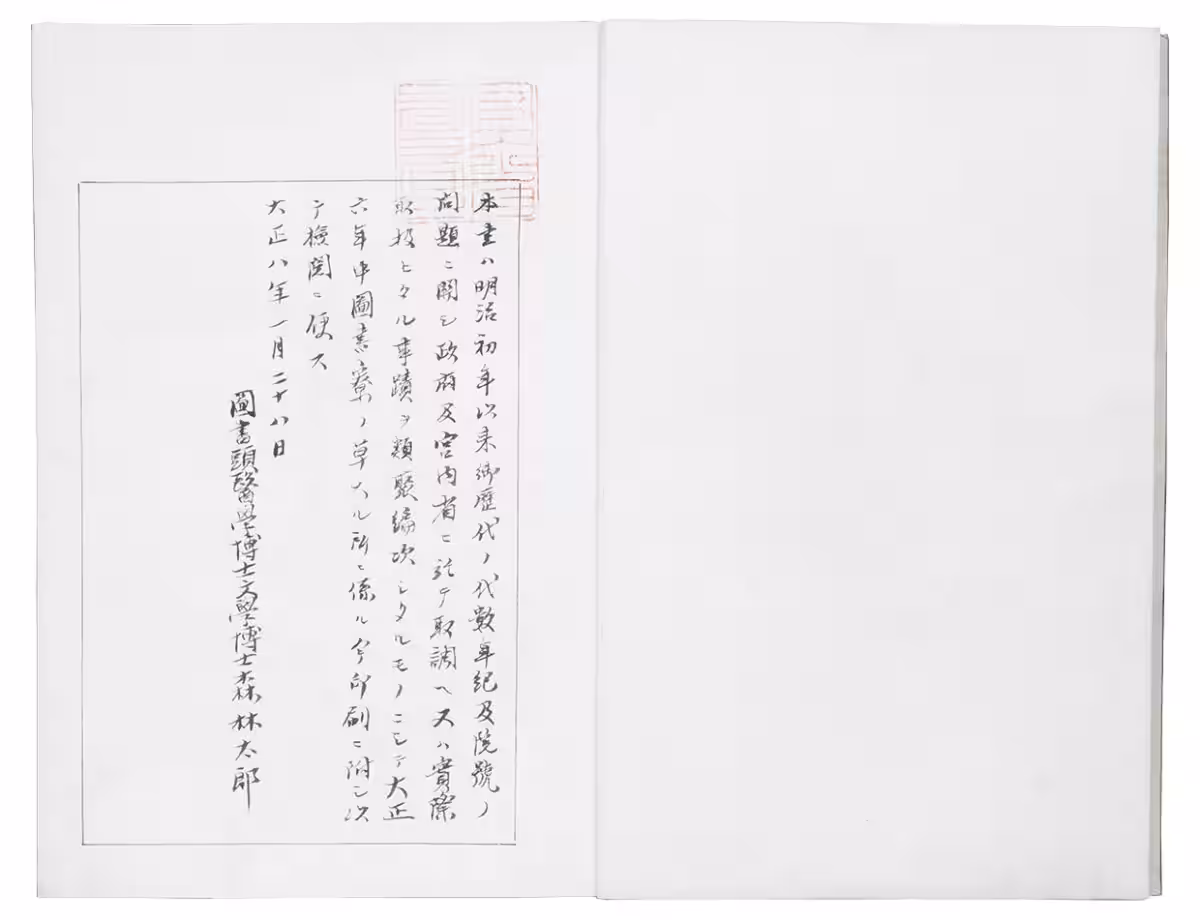 本書ハ明治初年以来御歴代ノ代數年紀及院號ノ
問題ニ關シ政府及宮内省ニ於テ取調ヘ又ハ實際
取扱ヒタル事蹟ヲ類聚編次シタルモノニシテ大正
六年中圖書寮ノ草スル所ニ係ル今印刷ニ附シ以
テ檢閲ニ便ス
大正八年一月二十八日
圖書頭醫學博士文學博士森林太郎